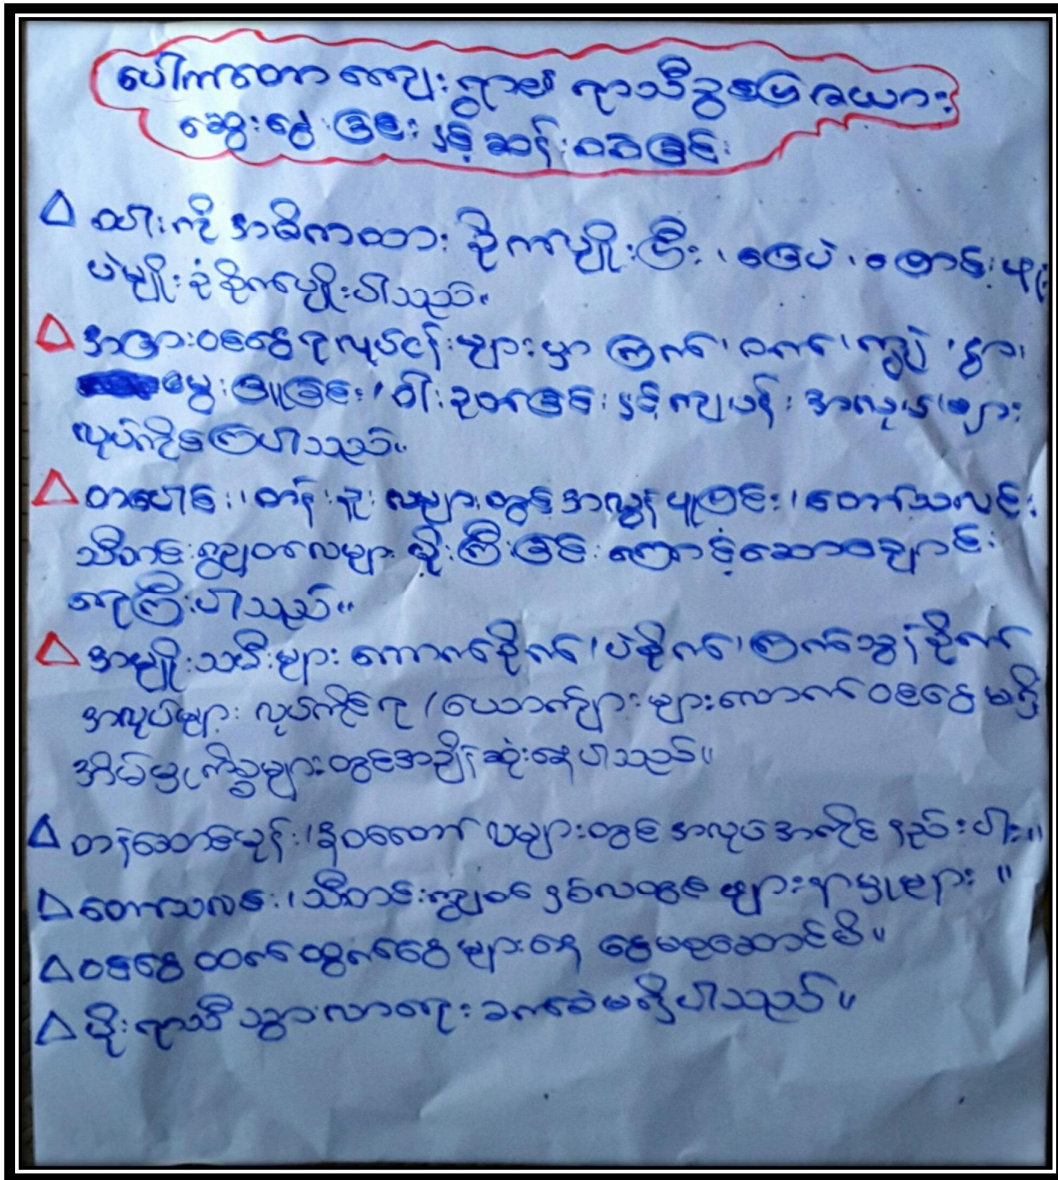 ပေါကတော ကျေးရွာ၏ ရာသီခွင်ပြဇယား
ဆွေးနွေးခြင်း နှင့် ဆန်းစစ်ခြင်း
ဝါးကို အဓိကထား စိုက်ပျိုးပြီး၊ မြေပဲ၊ ပြောင်း၊
ပဲမျိုးစုံ စိုက်ပျိုးပါသည်။
အခြားဝင်ငွေရလုပ်ငန်းများမှာ ကြက်၊ ဝက်၊ ကျွဲ၊ နွား၊
မွေးမြူခြင်း၊ ဝါးခုတ်ခြင်း နှင့် ကျပန်း အလုပ်များ
လုပ်ကိုင်ကြပါသည်။
တပေါင်း၊ တန်ခူး လများတွင် အလွန်ပူပြင်း၊ တော်သလင်း
သီတင်းကျွတ်လများ မိုးကြီးခြင်းကြောင့် ချောင်း
ရေကြီးပါသည်။
အမျိုးသမီးများ ကောက်စိုက်၊ ပဲစိုက်၊ ကြက်သွန်စိုက်
အလုပ်များ လုပ်ကိုင်ရ၊ ယောက်ျားများလောက် ဝင်ငွေမရှိ
အိမ်မှုကိစ္စများတွင်အချိန်ဆုံးနေပါသည်။
တန်ဆောင်မုန်း၊ နတ်တော် လများတွင် အလုပ်အကိုင် နည်းပါး။
တော်သလင်း၊ သီတင်းကျွတ် နှစ်လတွင် ဖျားနာမှုများ။
ဝင်ငွေ ထက် ထွက်ငွေ များနေ ငွေမစုဆောင်မိ။
မိုးရာသီ သွားလာရေး ခက်ခဲမရှိပါသည်။